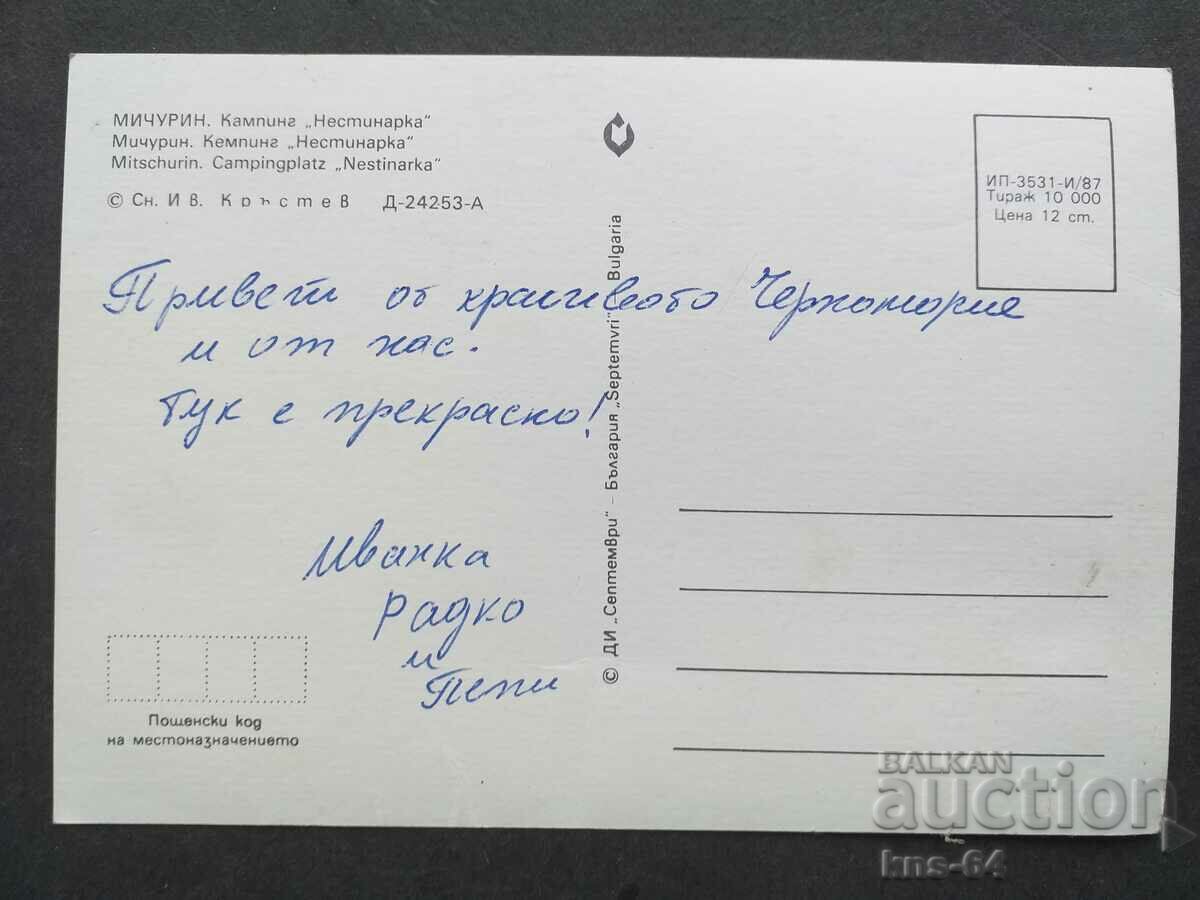 МИЧУРИН. Кампинг „Нестинарка“
Мичурин. Кемпинг „Нестинарка“
Mitschurin. Campingplatz „Nestinarka“
© Сн. Ив. Кръстев Д-24253-А
ИП-3531-И/87
Тираж 10 000
Цена 12 ст.
Привет от красивото Черноморие
и от нас.
Тук е прекрасно!
Иванка
Радко
и
Пепи
Пощенски код
на местоназначението
© ДИ „Септември“ - България „Septemvri“ Bulgaria
BALKAN
auction
kns-64